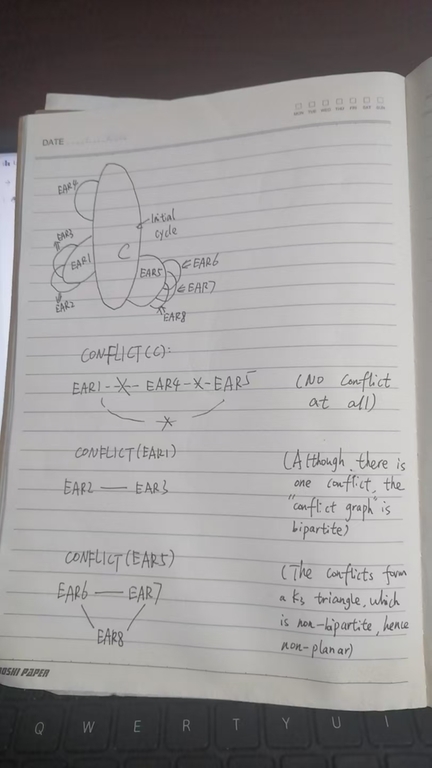 MON TUE WED THU FRI SAT SUN
DATE
EAR4
Initial
cycle
EAR3
EAR1
C
EAR5
EAR6
EAR7
EAR2
EAR8
CONFLICT(C):
EAR1 -X- EAR4 -X- EAR5
X
(No conflict
at all)
CONFLICT(EAR1)
EAR2 — EAR3
(Although there is
one conflict, the
"conflict graph" is
bipartite)
CONFLICT(EAR5)
EAR6 — EAR7
EAR8
(The conflicts form
a K3 triangle, which
is non-bipartite, hence
non-planar)
OSHI PAPER
Q W E R T Y U I